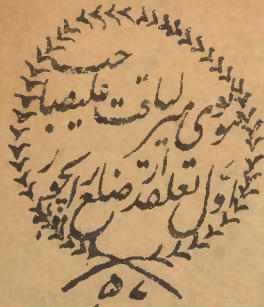 مولوی میر لیاقت علیصاحب
اول تعلقدار ضلع رایچور